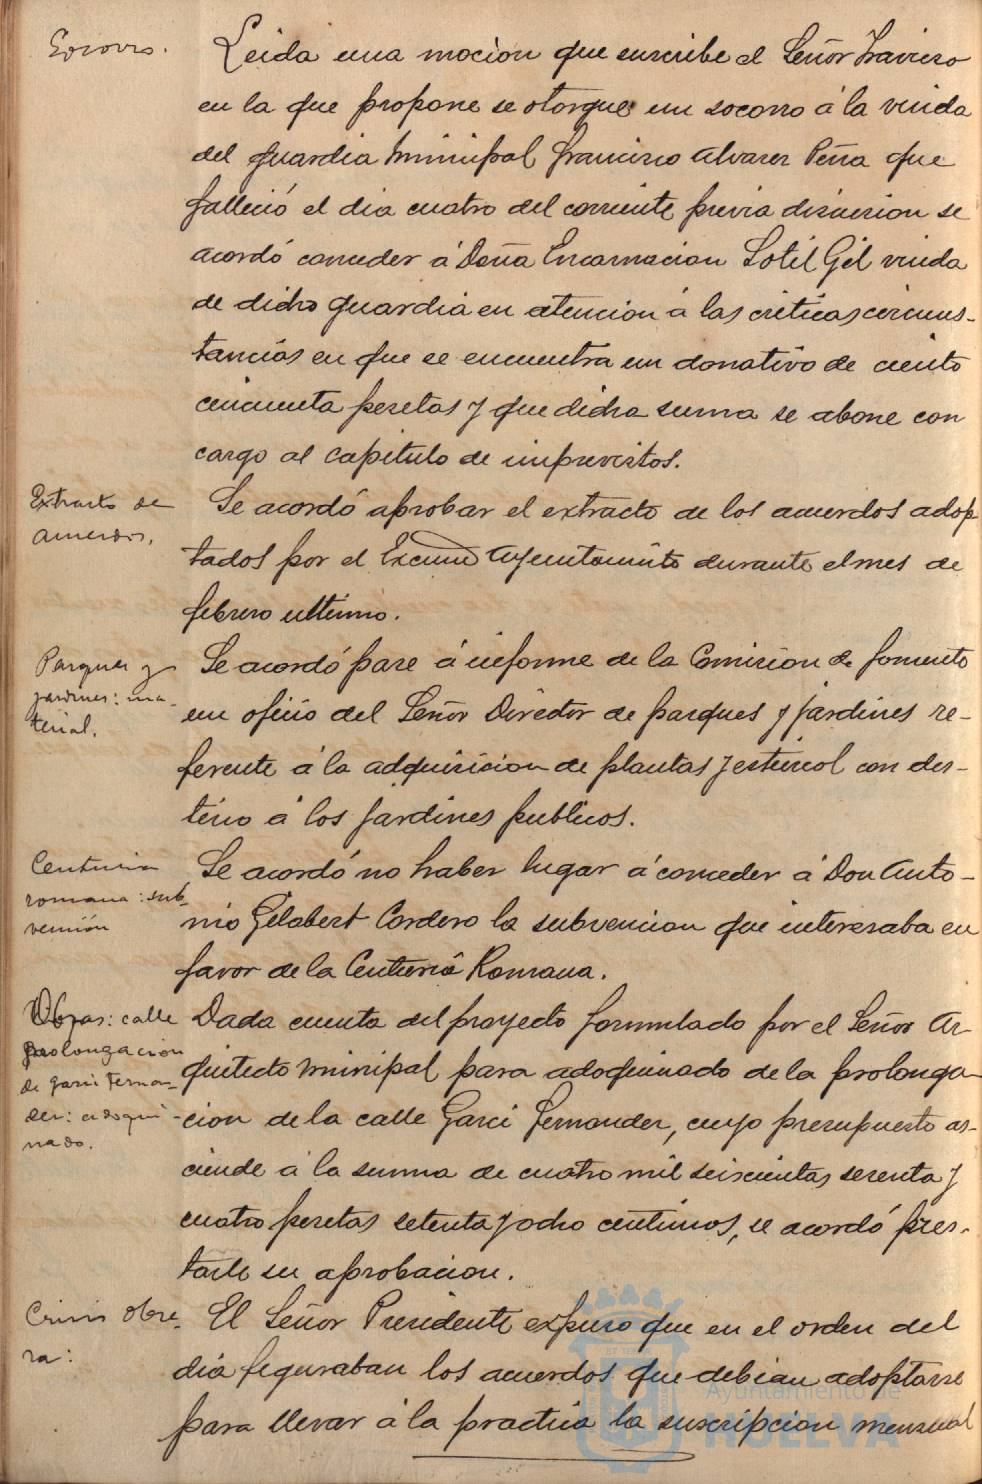 Socorro.
Leida una mocion que suscribe el Señor Traviero
en la que propone se otorgue un socorro á la viuda
del guardia Municipal Francisco Alvarez Peña que
falleció el dia cuatro del corriente, previa discusion se
acordó conceder á Doña Encarnacion Sotil Gil viuda
de dicho guardia en atencion á las criticas circuns-
tancias en que se encuentra un donativo de ciento
cincuenta pesetas y que dicha suma se abone con
cargo al capitulo de imprevistos.
Extracto de
acuerdos.
Se acordó aprobar el extracto de los acuerdos adop
tados por el Excmo Ayuntamiento durante el mes de
febrero ultimo.
Parques y
jardines: ma-
terial.
Se acordó pase á informe de la Comision de fomento
un oficio del Señor Director de parques y jardines re-
ferente á la adquisicion de plantas y estiercol con des-
tino á los jardines publicos.
Centuria
romana: sub-
vención
Se acordó no haber lugar á conceder á Don Anto-
nio Gelabert Cordero la subvencion que interesaba en
favor de la Centuria Romana.
Obras: calle
prolongacion
de Garci Fernan-
dez: adoqui-
nado.
Dada cuenta del proyecto formulado por el Señor Ar-
quitecto Municipal para adoquinado de la prolonga-
cion de la calle Garci Fernandez, cuyo presupuesto as-
ciende á la suma de cuatro mil seiscientas sesenta y
cuatro pesetas setenta y ocho centimos, se acordó pres-
tarle su aprobacion.
Crisis obre-
ra:
El Señor Presidente expuso que en el orden del
dia figuraban los acuerdos que debian adoptarse
para llevar á la practica la suscripcion mensual
Ayuntamiento de
HUELVA